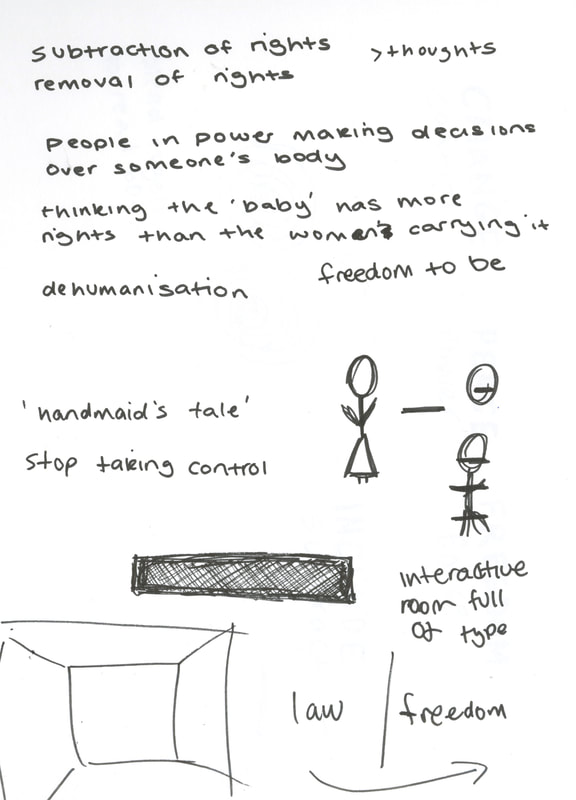 subtraction of rights >thoughts
removal of rights
people in power making decisions
over someone's body
thinking the 'baby' has more
rights than the women's carrying it
dehumanisation
freedom to be
'handmaid's tale'
stop taking control
interactive
room full
of type
law | freedom